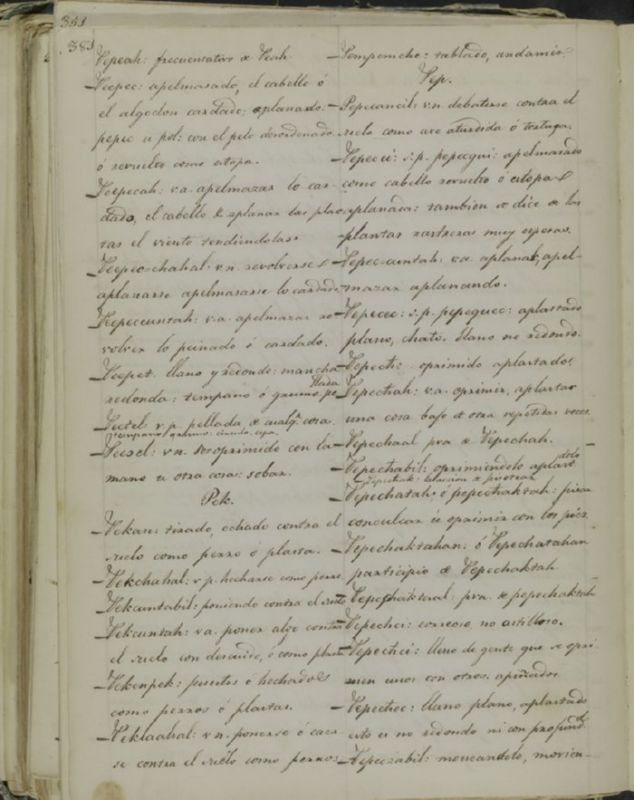 381
381
Pepeah: frecuentativo de Peah
Peepec: apelmasado, el cabello ó
el algodon cardado; aplanado.
pepec u pol: con el pelo desordenado
ó revuelto como estopa.
Peepecah: v.a. apelmazar lo car-
dado, el cabello & aplanar las plan
tas el viento tendiéndolas.
Peepec-chahal: v.n. revolverse,
aplanarse apelmasarse lo cardado
Peepeccuntah: v.a. apelmazar re-
volver lo peinado ó cardado.
Peepet. llano y redondo: mancha
redonda: tempano ó grumo. pe
llada
v.p. pellada de cualqa. cosa.
tempano grumo.
v.n. ser oprimido con la
mano u otra cosa: sobar.
Pek.
Pekan: tirado, echado contra el
suelo como perro ó planta.
Pekchahal: v.p. hecharse como perro
Pekcuntabil: poniendo contra el suelo
Pekcuntah: v.a. poner algo contra
el suelo con descuido, ó como planta
Pekenpek: puestos ó hechados
como perros ó plantas.
Peklaahal: v.n. ponerse ó caer
se contra el suelo como perros
Pempemche: tablado, andamio.
Pep.
v.n. debatirse contra el
suelo como ave aturdida ó tortuga.
Pepecci: s.p. pepecqui: apelmasado
como cabello revuelto ó estopa &
aplanada: tambien se dice de las
plantas rastreras muy espesas.
Pepec-cuntah: v.a. aplanar, apel-
mazar aplanando.
Pepecec: s.p. pepequec: aplastado
plano, chato. llano no redondo.
Pepech: oprimido aplastado.
Pepechah: v.a. oprimir, aplastar
una cosa bajo de otra repetidas veces.
Pepechaal pva. de Pepechah.
Pepechabil: oprimiendolo aplast
dolo
Pepechatah: ó pepechaktah: pisar
conculcar ú oprimir con los pies
Pepechaktahan: ó Pepechatahan
participio de Pepechaktah
Pepechaktaal: pva. de pepechaktah
Pepechci: correoso no astilloso.
Pepechci: lleno de gente que se opri
men unos con otros. apiñados.
Pepechec: llano plano, aplastado
esto es no redondo ni con profund
d.
Pepeczabil: meneandolo, movien-